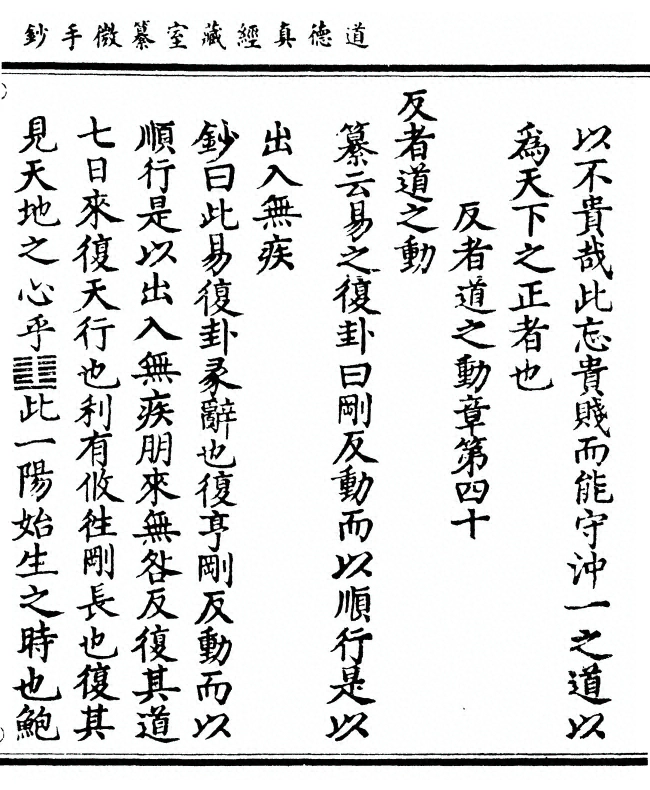 道德真經藏室纂微手鈔
以不貴哉此忘貴賤而能守沖一之道以
爲天下之正者也
反者道之動章第四十
反者道之動
纂云易之復卦曰剛反動而以順行是以
出入無疾
鈔曰此易復卦彖辭也復亨剛反動而以
順行是以出入無疾朋來無咎反復其道
七日來復天行也利有攸往剛長也復其
見天地之心乎䷗此一陽始生之時也鮑